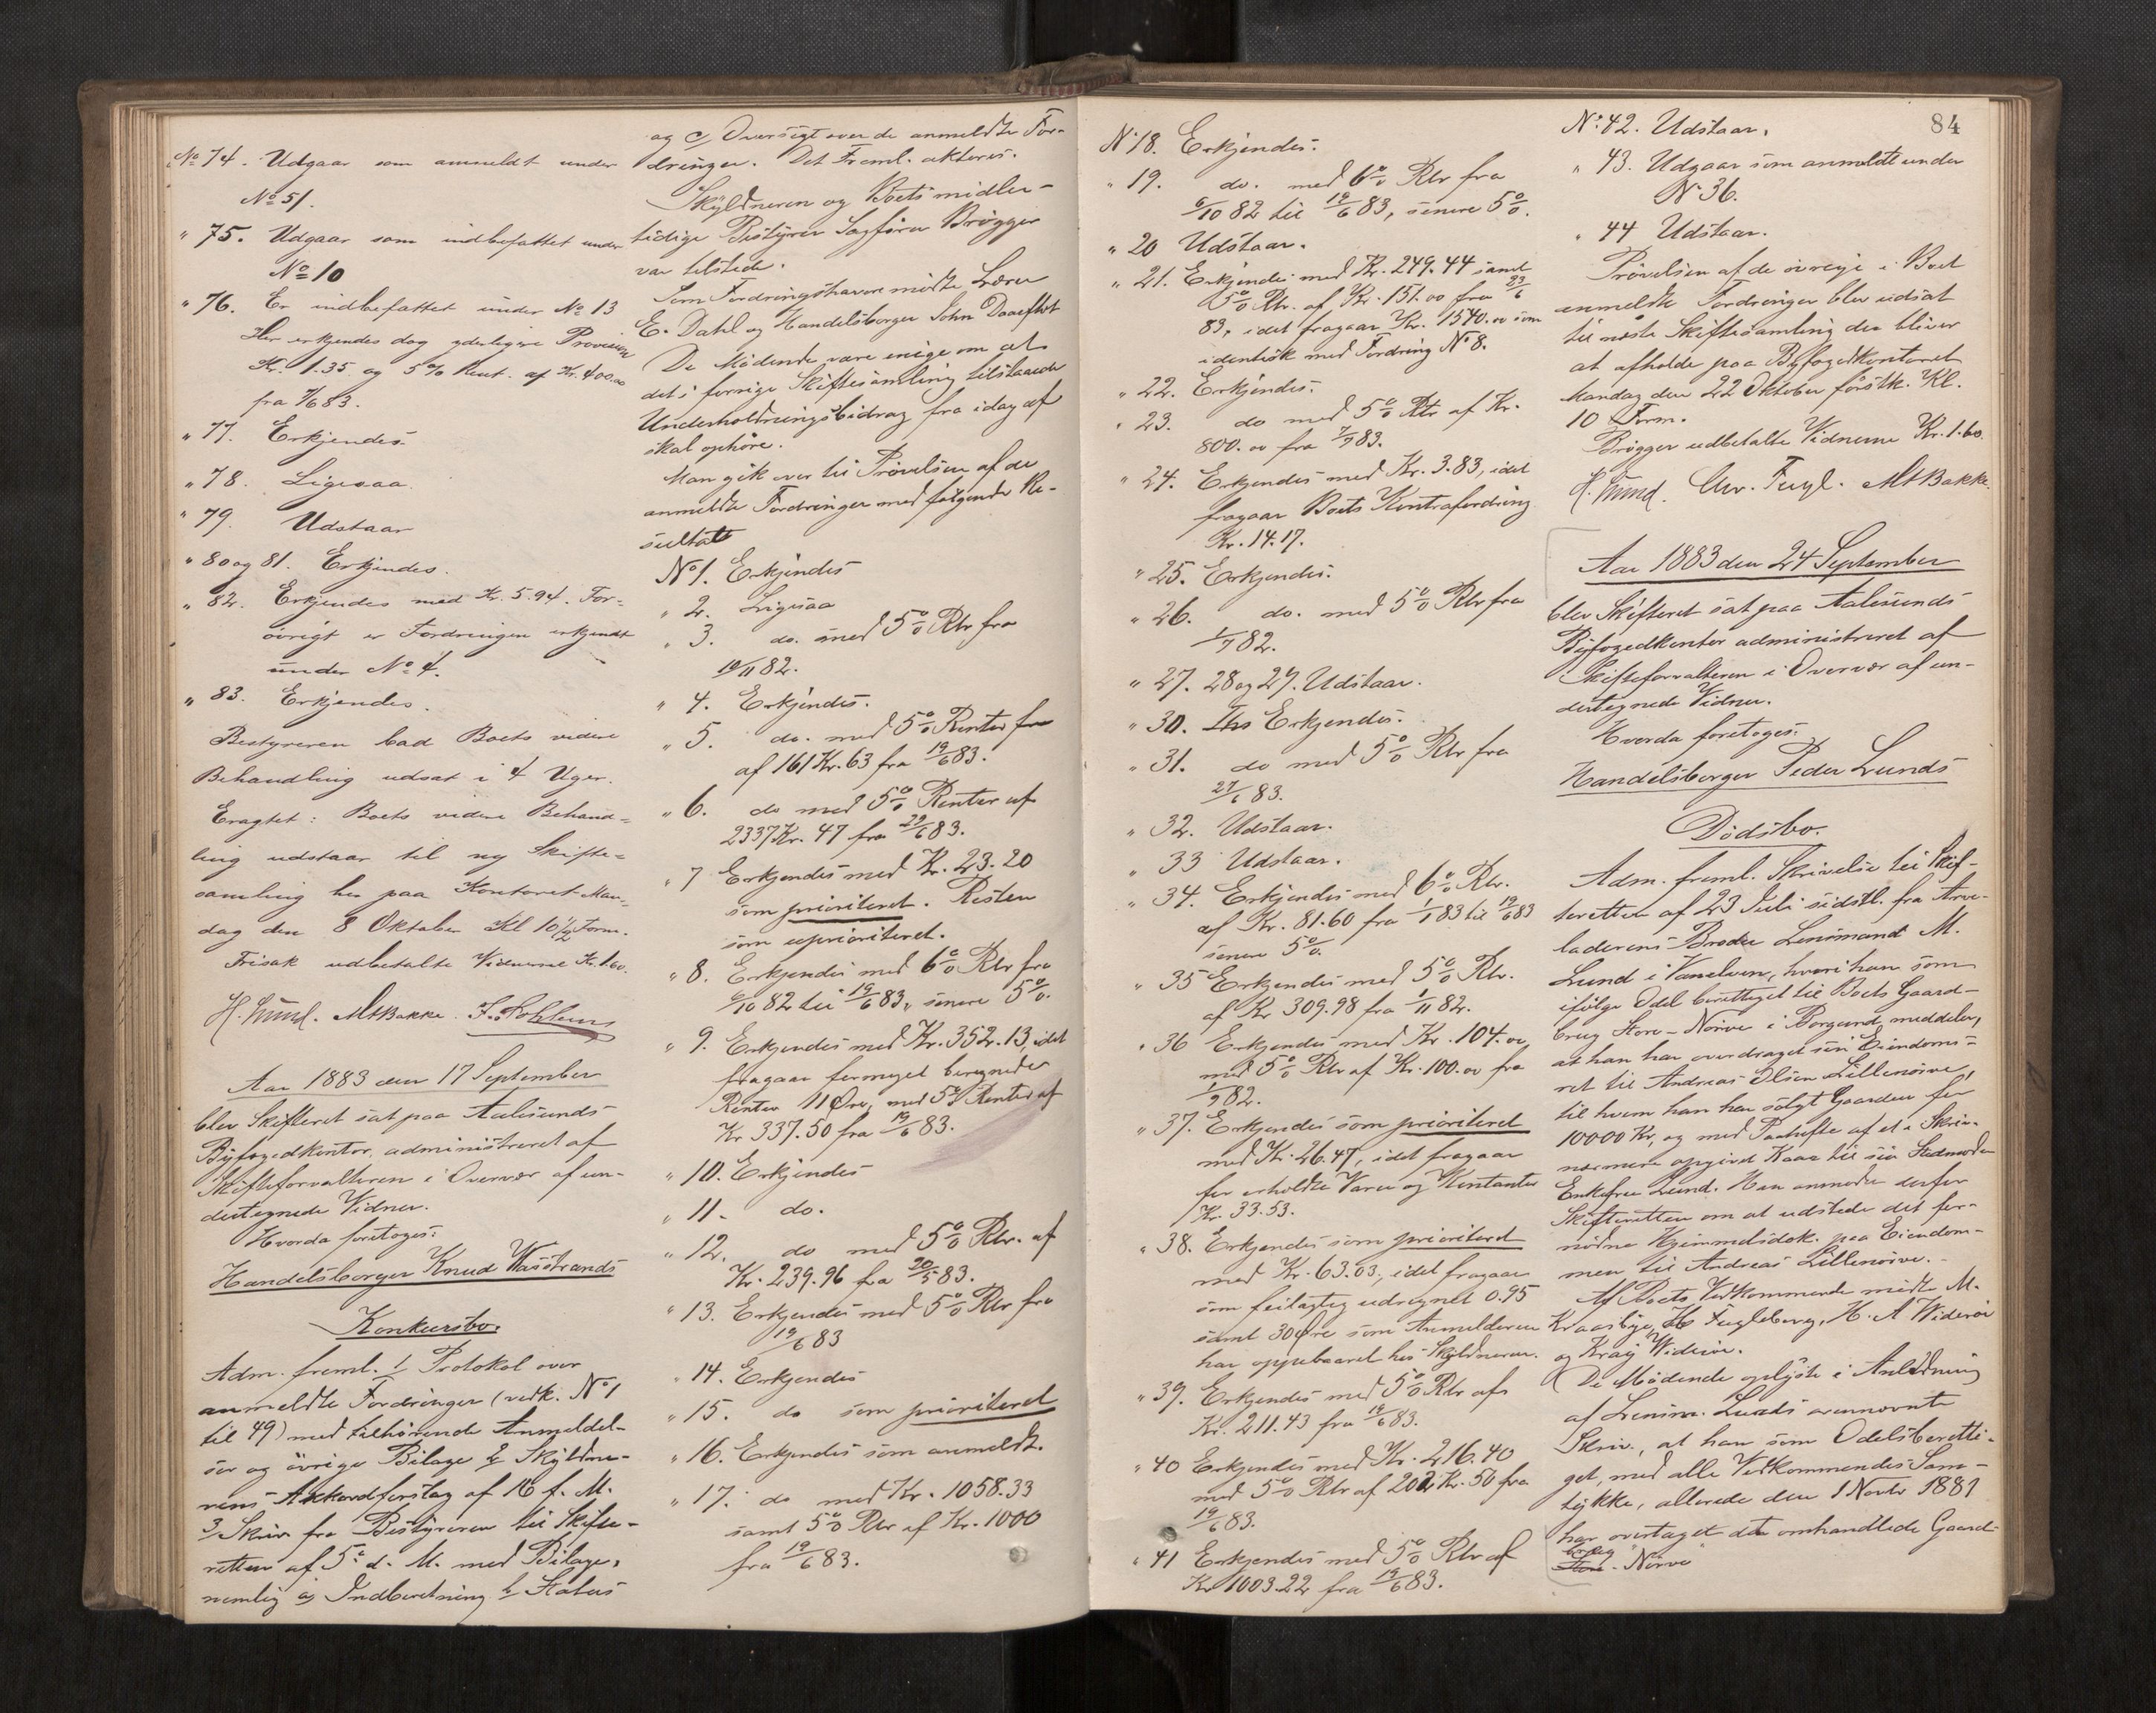 No 74. Udgaar som anmeldt under
No 51.
" 75. Udgaar som indbefattet under
No 10
" 76. Er indbefattet under No 13
Her erkjendes dog yderligere Provision
Kr. 1.35 og 5% Rent. af Kr. 400.00
fra 83.
" 77. Erkjendes.
" 78. Ligesaa
" 79. Udstaar
" 80 og 81. Erkjendes.
" 82. Erkjendes med Kr. 5.94. For-
øvrigt er Fordringen erkjendt
under No 4.
" 83. Erkjendes.
Bestyreren bad Boets videre
Behandling udsat i 4 Uger.
Eragtet: Boets videre Behand-
ling udstaar til ny Skifte-
samling her paa Kontoret Man-
dag den 8 Oktober Kl 10 1/2 Form.
Frisak udbetalte Vidnerne Kr. 1.60.
H. Lund. MBakke.
Aar 1883 den 17 September
blev Skifteret sat paa Aalesunds
Byfogedkontor, administreret af
Skifteforvalteren i Overvær af un-
dertegnede Vidner.
Hvorda foretoges:
Handelsborger Knud Wasstrands
Konkursbo.
Adm. freml. 1/ Protokol over
anmeldte Fordringer (vedk. No 1
til 49) med tilhørende Anmeldel-
ser og øvrige Bilage 2/ Skyldne-
rens Akkordforslag af 16 f. M.
3/ Skriv. fra Bestyreren til Skifte-
retten af 5. d. M. med Bilage,
nemlig a) Indberetning b) Status
og c) Oversigt over de anmeldte For-
dringer. Det Freml. akteres.
Skyldneren og Boets midler-
tidige Bestyrer Sagfører Brøgger
var tilstede.
Som Fordringshavere mødte Lærer
E. Dahl og Handelsborger John
De Mødende vare enige om at
det i forrige Skiftesamling tilstaaede
Underholdningsbidrag fra idag af
skal ophøre.
Man gik over til Prøvelsen af de
anmeldte Fordringer med følgende Re-
sultat
No 1. Erkjendes
" 2. Ligesaa
" 3. do. med 5% Rtr fra
10/11 82.
" 4. Erkjendes.
" 5. do. med 5% Renter fra
af 161 Kr. 63 fra 19/6 83.
" 6. do med 5% Renter af
2337 Kr. 47 fra 29/6 83.
" 7 Erkjendes med Kr. 23.20
som prioriteret. Resten
som uprioriteret.
" 8. Erkjendes med 6% Rtr fra
6/10 82 til 19/6 83, senere 5%.
" 9. Erkjendes med Kr. 352.13, idet
fragaar formeget beregnede
Renter 11 Øre, med 5% Renter af
Kr 337.50 fra 19/6 83.
" 10. Erkjendes
" 11. do.
" 12. do med 5% Rtr. af
Kr. 239.96 fra 20/5 83.
" 13. Erkjendes med 5% Rtr fra
19/6 83
" 14. Erkjendes
" 15. do som prioriteret
" 16. Erkjendes som anmeldt.
" 17. do med Kr. 1058.33
samt 5% Rtr af Kr. 1000
fra 19/6 83.
No 18. Erkjendes.
" 19. do. med 6% Rtr fra
6/10 82 til 19/6 83, senere 5%.
" 20 Udstaar.
" 21. Erkjendes med Kr. 249.44 samt
5% Rtr. af Kr. 151.00 fra 23/6
83, idet fragaar Kr. 1540.00 som
identisk med Fordring No 8.
" 22. Erkjendes.
" 23. do med 5% Rtr af Kr.
800.00 fra 7/9 83.
" 24. Erkjendes med Kr. 3.83, idet
fragaar Boets Kontrafordring
Kr. 14.17.
" 25. Erkjendes.
" 26. do. med 5% Rtr fra
1/9 82.
" 27. 28 og 29. Udstaar.
" 30. Erkjendes.
" 31. do med 5% Rtr fra
27/6 83.
" 32. Udstaar.
" 33 Udstaar.
" 34. Erkjendes med 6% Rtr.
af Kr. 81.60 fra 1/1 83 til 19/6 83
senere 5%.
" 35 Erkjendes med 5% Rtr.
af Kr 309.98 fra 1/11 82.
" 36 Erkjendes med Kr. 104.00
med 5% Rtr af Kr. 100.00 fra
1/9 82.
" 37. Erkjendes som prioriteret
med Kr. 26.47, idet fragaar
for erholdte Varer og Kontanter
Kr. 33.53.
" 38. Erkjendes som prioriteret
med Kr. 63.03, idet fragaar
som feilagtig udregnet 0.95
samt 30 Øre som Anmelderen
har oppebaaret hos Skyldneren.
" 39. Erkjendes med 5% Rtr af
Kr. 211.43 fra 19/6 83.
" 40 Erkjendes med Kr. 216.40
med 5% Rtr af 202 Kr. 50 fra
19/6 83.
" 41 Erkjendes med 5% Rtr af
Kr 1003.22 fra 19/6 83.
84
No. 42. Udstaar.
" 43. Udgaar som anmeldt under
No 36.
" 44 Udstaar.
Prøvelsen af de øvrige i Boet
anmeldte Fordringer blev udsat
til næste Skiftesamling der bliver
at afholde paa Byfogedkontoret
Mandag den 22 Oktober førstk. Kl.
10 Form.
Brøgger udbetalte Vidnerne Kr. 1.60.
H. Lund. Chr. Fugl. MBakke.
Aar 1883 den 24 September
blev Skifteret sat paa Aalesunds
Byfogedkontor administreret af
Skifteforvalteren i Overvær af un-
dertegnede Vidner.
Hvorda foretoges:
Handelsborger Peder Lunds
Dødsbo.
Adm. freml. Skrivelse til Skif-
teretten af 23 Juli sidstl. fra Arve-
laderens Broder Lensmand M.
Lund i Vanelven, hvori han som
ifølge Odel berettiget til Boets Gaard-
brug Store-Nørve i Borgund meddeler,
at han har overdraget sin Eiendoms-
ret til Andreas Olsen Lillenørve,
til hvem han har solgt Gaarden for
10000 Kr, og med Paahefte af et i Skriv.
nærmere opgivet Kaar til sin Stedmoder
Enkefru Lund. Han anmoder derfor
Skifteretten om at udstede det for-
nødne Hjemmelsdok. paa Eiendom-
men til Andreas Lillenørve.
Af Boets Vedkommende mødte M.
Kraasbye, Fugleberg, H. A Widerøe
og Widerøe.
De Mødende oplyste i Anledning
af Lensm. Lunds ovennævnte
Skriv., at han som Odelsberetti-
get, med alle Vedkommendes Sam-
tykke, allerede den 1 Novbr 1881
har overtaget det omhandlede Gaard-
brug
Store-Nørve